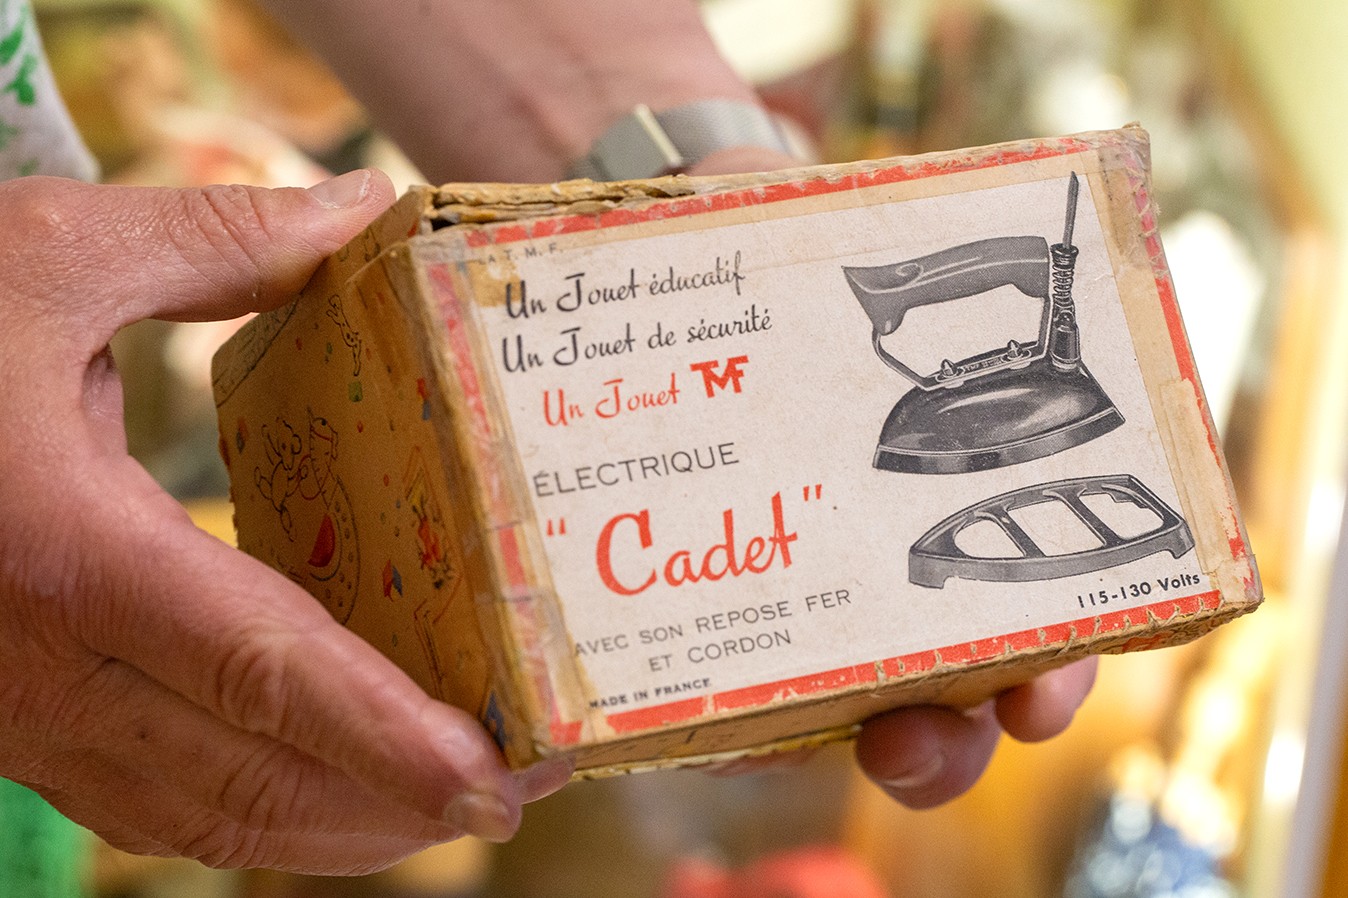 A T. M. F.
Un Jouet éducatif
Un Jouet de sécurité
Un Jouet TMF
ÉLECTRIQUE
“Cadet”
AVEC SON REPOSE FER
ET CORDON
MADE IN FRANCE
115-130 Volts